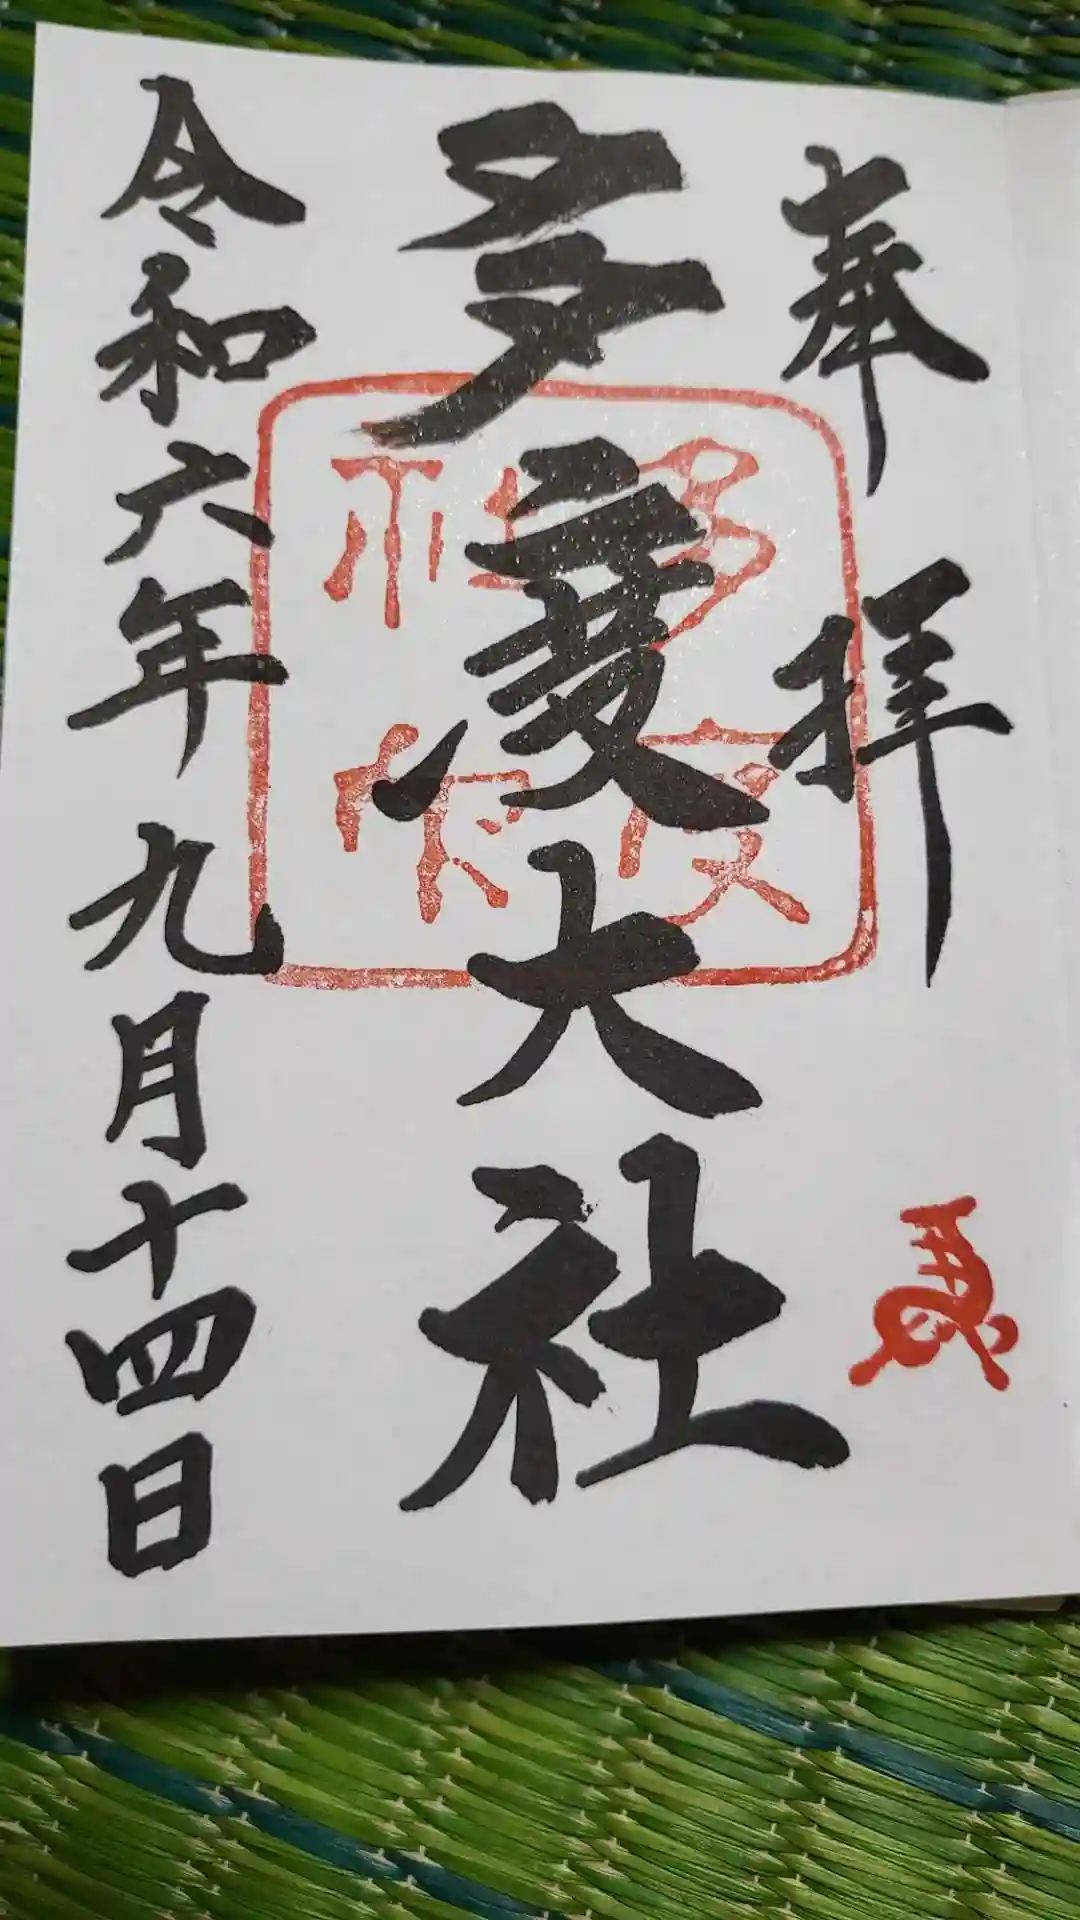 奉拝
多度大社
令和六年九月十四日
多度
社印